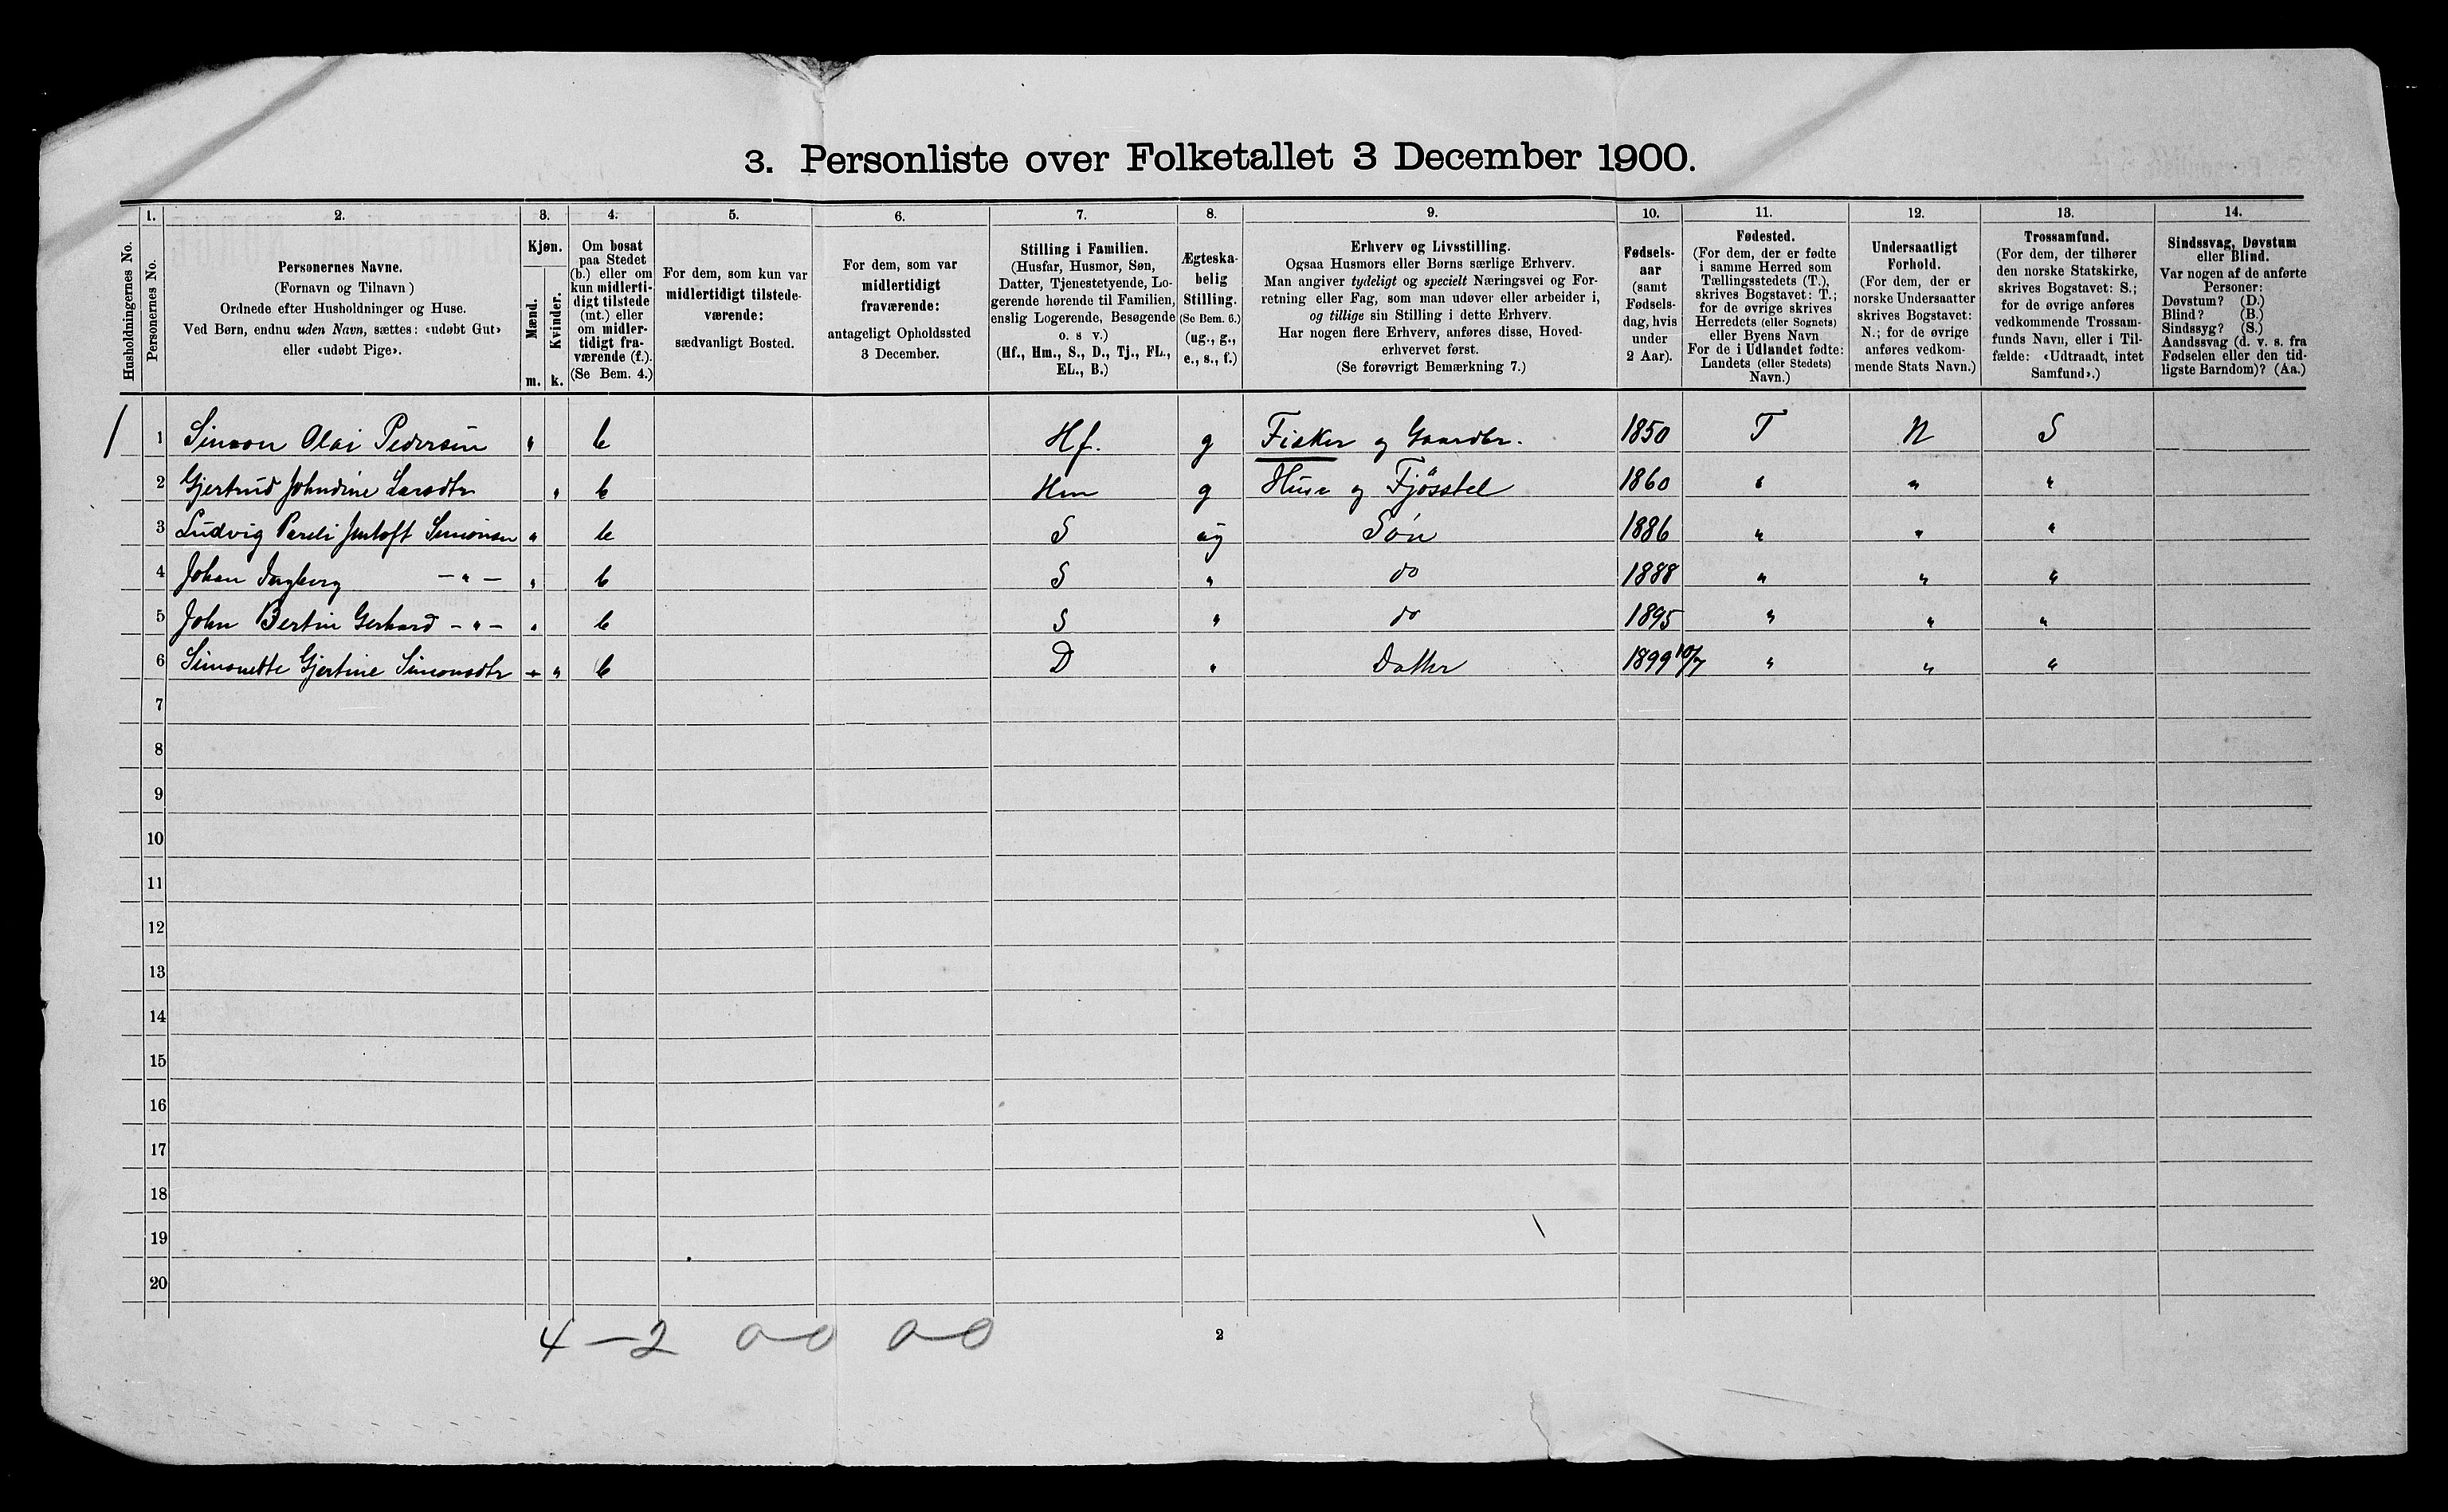 3. Personliste over Folketallet 3 December 1900.
Husholdningernes No.
1.
Personernes No.
2.
Personernes Navne.
(Fornavn og Tilnavn)
Ordnede efter Husholdninger og Huse.
Ved Børn, endnu uden Navn, sættes: «udøbt Gut»
eller «udøbt Pige».
3.
Kjøn.
Mænd.
m.
Kvinder.
k.
4.
Om bosat
paa Stedet
(b.) eller om
kun midlerti-
digt tilstede
(mt.) eller
om midler-
tidigt fra-
værende (f.).
(Se Bem. 4.)
5.
For dem, som kun var
midlertidigt tilstede-
værende:
sædvanligt Bosted.
6.
For dem, som var
midlertidigt
fraværende:
antageligt Opholdssted
3 December.
7.
Stilling i Familien.
(Husfar, Husmor, Søn,
Datter, Tjenestetyende, Lo-
gerende hørende til Familien,
enslig Logerende, Besøgende
o. s v.)
(Hf., Hm., S., D., Tj., FL.,
EL., B.)
8.
Ægteska-
belig
Stilling.
(Se Bem. 6.)
(ug., g.,
e., s., f.)
9.
Erhverv og Livsstilling.
Ogsaa Husmors eller Børns særlige Erhverv.
Man angiver tydeligt og specielt Næringsvei og For-
retning eller Fag, som man udøver eller arbeider i,
og tillige sin Stilling i dette Erhverv.
Har nogen flere Erhverv, anføres disse, Hoved-
erhvervet først.
(Se forøvrigt Bemærkning 7.)
10.
Fødsels-
aar
(samt
Fødsels-
dag, hvis
under
2 Aar).
11.
Fødested.
(For dem, der er fødte
i samme Herred som
Tællingsstedets (T.),
skrives Bogstavet: T.;
for de øvrige skrives
Herredets (eller Sognets)
eller Byens Navn
For de i Udlandet fødte:
Landets (eller Stedets)
Navn.)
12.
Undersaatligt
Forhold.
(For dem, der er
norske Undersaatter
skrives Bogstavet:
N.; for de øvrige
anføres vedkom-
mende Stats Navn.)
13.
Trossamfund.
(For dem, der tilhører
den norske Statskirke,
skrives Bogstavet: S.;
for de øvrige anføres
vedkommende Trossam-
funds Navn, eller i Til-
fælde: «Udtraadt, intet
Samfund».)
14.
Sindssvag, Døvstum
eller Blind.
Var nogen af de anførte
Personer:
Døvstum? (D.)
Blind? (B.)
Sindssyg? (S.)
Aandssvag (d. v. s. fra
Fødselen eller den tid-
ligste Barndom)? (Aa.)
1 1 Simon Olai Pedersen " b Hf. g Fisker og Gaardbr. 1850 T N S
2 Gjertrud Johndine Larsdtr " b Hm g Hus og Fjøsstel 1860 " " "
3 Ludvig Pareli Simonsen " b S ug Søn 1886 " " "
4 Johan Ingberg — " — " b S " do 1888 " " "
5 John Bertin Gerhard — " — " b S " do 1895 " " "
6 Simonette Gjertine Simonsdtr " b D " Datter 1899 10/7 " " "
7
8
9
10
11
12
13
14
15
16
17
18
19
20
4 — 2 0—0 0—0 2